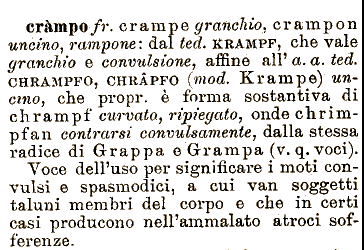 cràmpo fr. crampe granchio, crampon
uncino, rampone: dal ted. KRAMPF, che vale
granchio e convulsione, affine all' a. a. ted.
CHRAMPFO, CHRÂPFO (mod. Krampe) un-
cino, che propr. è forma sostantiva di
chrampf curvato, ripiegato, onde chrim-
pfan contrarsi convulsamente, dalla stessa
radice di Grappa e Grampa (v. q. voci).
Voce dell'uso per significare i moti con-
vulsi e spasmodici, a cui van soggetti
taluni membri del corpo e che in certi
casi producono nell'ammalato atroci sof-
ferenze.